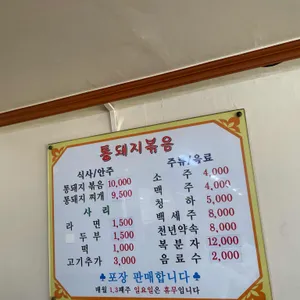 통돼지볶음
식사/안주
통돼지 볶음 10,000
통돼지 찌개 9,500
사 리
라 면 1,500
두 부 1,500
떡 1,000
고기추가 3,000
주류/음료
소 주 4,000
맥 주 4,000
청 하 5,000
백 세 주 8,000
천년약속 8,000
복 분 자 12,000
음 료 수 2,000
♣포장 판매합니다♣
매월 1,3째주 일요일은 휴무입니다